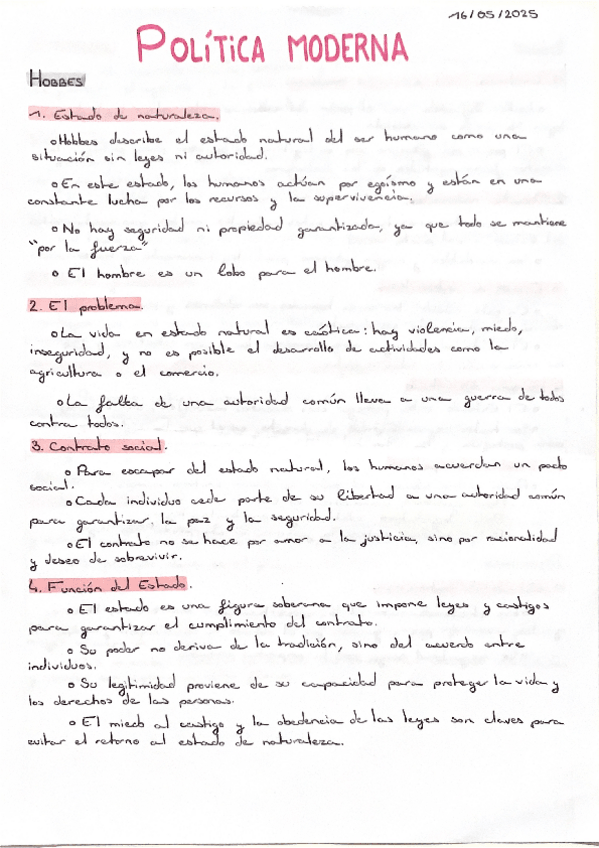 16/05/2025
POLÍTICA MODERNA
HOBBES
1. Estado de naturaleza.
o Hobbes describe el estado natural del ser humano como una
situación sin leyes ni autoridad.
o En este estado, los humanos actúan por egoísmo y están en una
constante lucha por los recursos y la supervivencia.
o No hay seguridad ni propiedad garantizada, ya que todo se mantiene
"por la fuerza"
o El hombre es un lobo para el hombre.
2. El problema.
o La vida en estado natural es caótica: hay violencia, miedo,
inseguridad, y no es posible el desarrollo de actividades como la
agricultura o el comercio.
o La falta de una autoridad común lleva a una guerra de todos
contra todos.
3. Contrato social.
o Para escapar del estado natural, los humanos acuerdan un pacto
social.
o Cada individuo cede parte de su libertad a una autoridad común
para garantizar la paz y la seguridad.
o El contrato no se hace por amor a la justicia, sino por racionalidad
y deseo de sobrevivir.
4. Función del Estado.
o El estado es una figura soberana que impone leyes y castigos
para garantizar el cumplimiento del contrato.
o Su poder no deriva de la tradición, sino del acuerdo entre
individuos.
o Su legitimidad proviene de su capacidad para proteger la vida y
los derechos de las personas.
o El miedo al castigo y la obediencia de las leyes son claves para
evitar el retorno al estado de naturaleza.